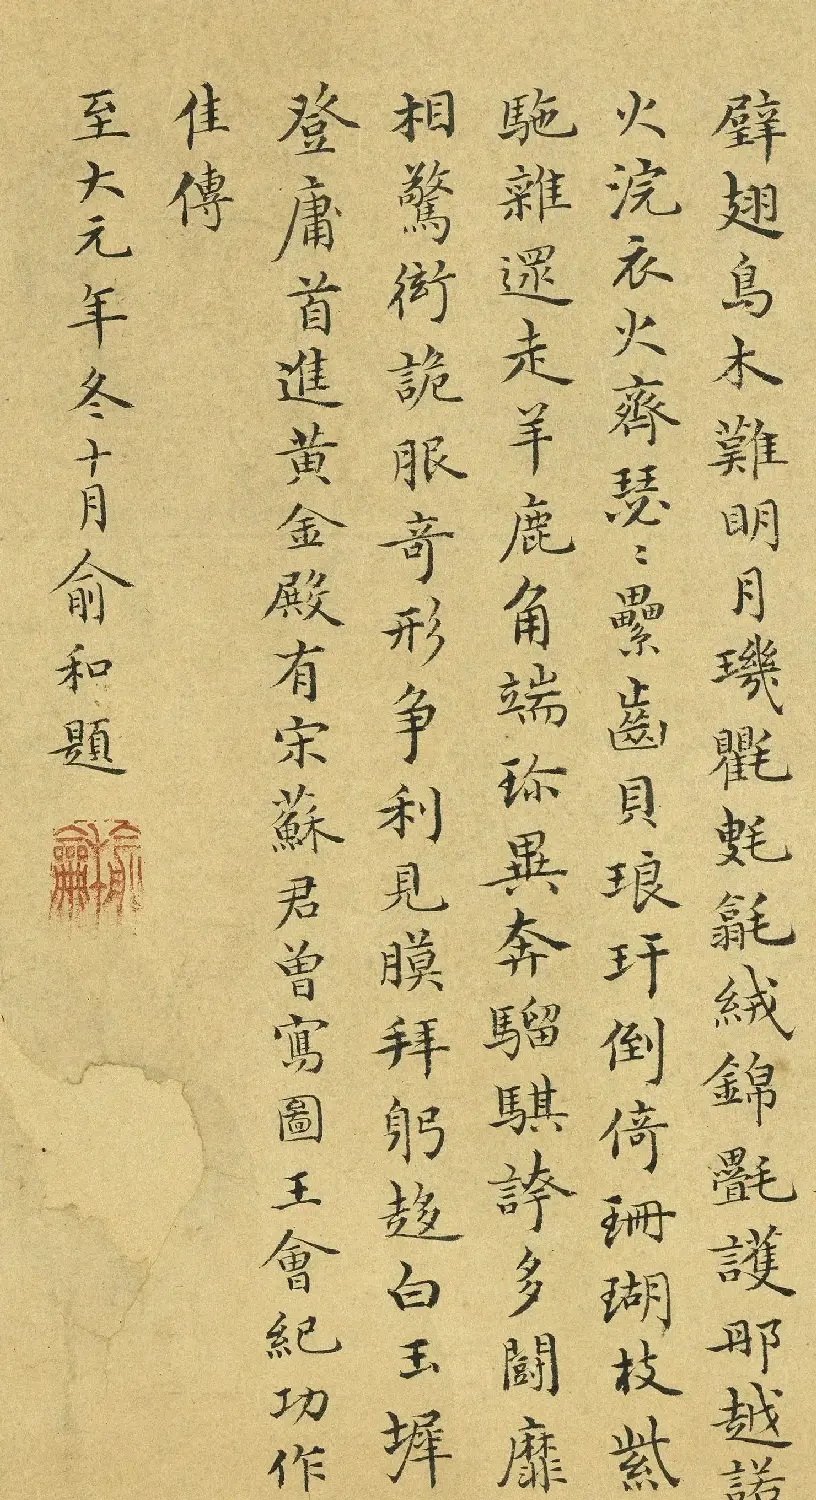 璧翅鳥木難明月璣氍㲣毹絨錦㲲護那越諾
火浣衣火齊瑟〻纍齒貝琅玕倒倚珊瑚枝紫
駞雜遝走羊鹿角端珎異奔騮騏誇多鬪靡
相驚衒詭服奇形争利見膜拜躬趍白玉墀
登庸首進黄金殿有宋蘇君曽寫圖王會紀功作
佳傳
至大元年冬十月俞和題